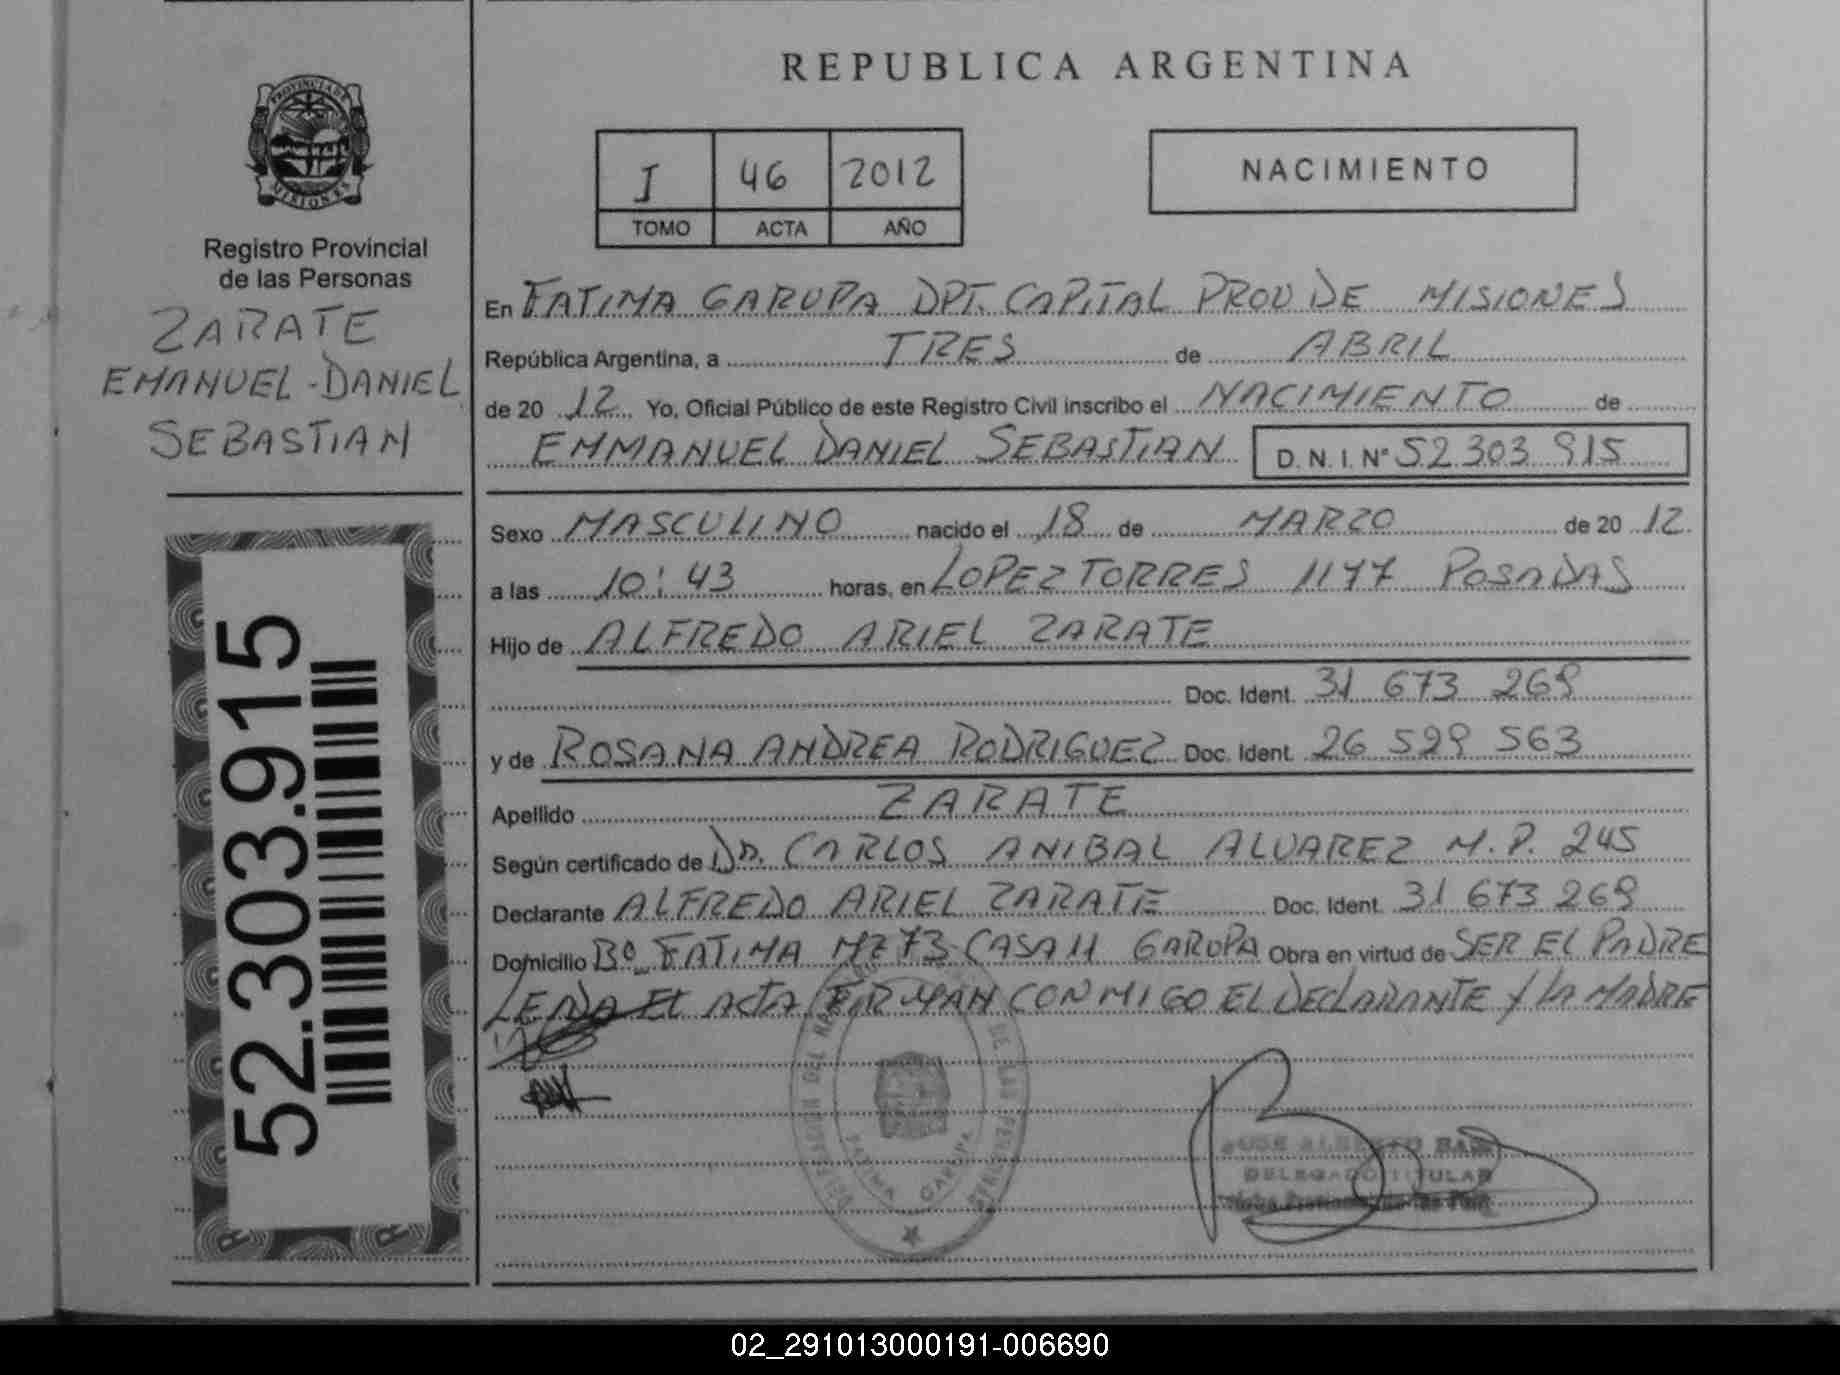 REPUBLICA ARGENTINA
PROVINCIA DE
MISIONES
Registro Provincial
de las Personas
ZARATE
EMANUEL-DANIEL
SEBASTIAN
52.303.915
I 46 2012
TOMO ACTA AÑO
NACIMIENTO
En FATIMA GARUPA DPT. CAPITAL PROV DE MISIONES
República Argentina, a TRES de ABRIL
de 20 12 Yo, Oficial Público de este Registro Civil inscribo el NACIMIENTO de
EMMANUEL DANIEL SEBASTIAN D.N.I. Nº 52 303 915
Sexo MASCULINO nacido el 18 de MARZO de 20 12
a las 10:43 horas, en LOPEZ TORRES 1177 POSADAS
Hijo de ALFREDO ARIEL ZARATE
Doc. Ident. 31 673 269
y de ROSANA ANDREA RODRIGUEZ Doc. Ident. 26 529 563
Apellido ZARATE
Según certificado de DR. CARLOS ANIBAL ALVAREZ M.P. 245
Declarante ALFREDO ARIEL ZARATE Doc. Ident. 31 673 269
Domicilio Bº FATIMA MZ 73 CASA 11 GARUPA Obra en virtud de SER EL PADRE
LEIDA EL ACTA FIRMAN CONMIGO EL DECLARANTE Y LA MADRE
FATIMA GARUPA
DELEGADO TITULAR
02_291013000191-006690